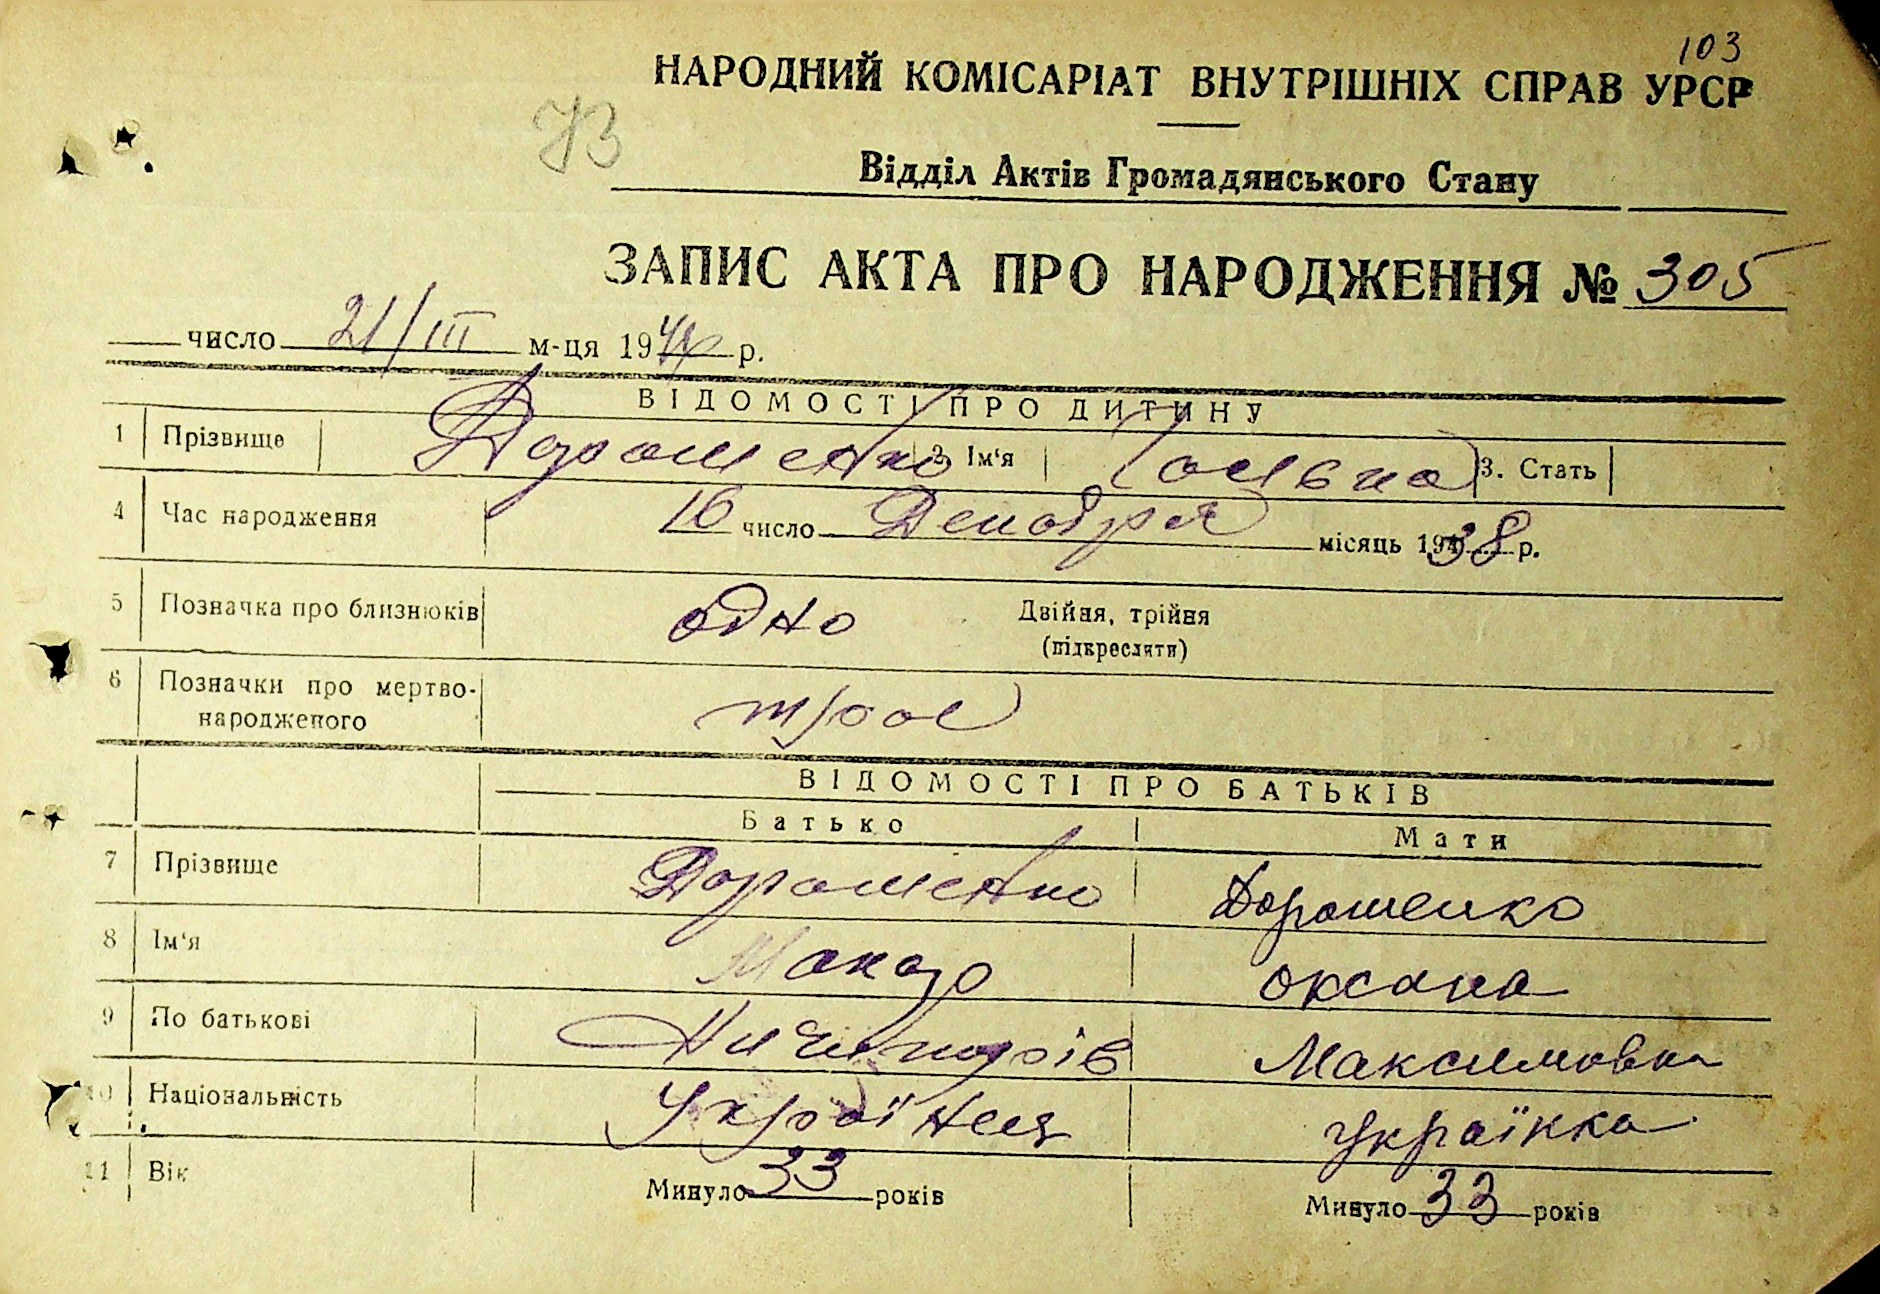 103
НАРОДНИЙ КОМІСАРІАТ ВНУТРІШНІХ СПРАВ УРСР
Відділ Актів Громадянського Стану
ЗАПИС АКТА ПРО НАРОДЖЕННЯ № 305
число 21/III м-ця 1944 р.
ВІДОМОСТІ ПРО ДИТИНУ
1 Прізвище Дорошенко 2. Ім'я 3. Стать
4 Час народження 16 число Декабря місяць 1938 р.
5 Позначка про близнюків одно Двійня, трійня
(підкреслити)
6 Позначки про мертво-
народженого
ВІДОМОСТІ ПРО БАТЬКІВ
Батько Мати
7 Прізвище Дорошенко Дорошенко
8 Ім'я Макар Оксана
9 По батькові Ничипорів Максимовна
10 Національність Українець українка
11 Вік Минуло 33 років Минуло 33 років